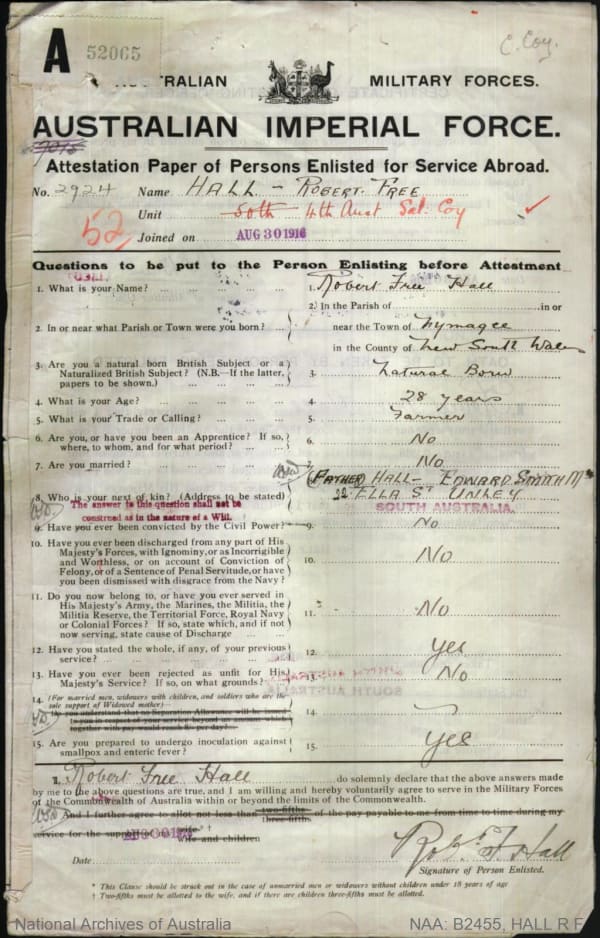 A 52065
C. Coy.
AUSTRALIAN MILITARY FORCES.
AUSTRALIAN IMPERIAL FORCE.
Attestation Paper of Persons Enlisted for Service Abroad.
No. 2924 Name HALL - ROBERT. FREE
Unit 50th 4th Aust Sal. Coy
52 Joined on AUG 30 1916
Questions to be put to the Person Enlisting before Attestation
1. What is your Name? 1. Robert Free Hall
2. In or near what Parish or Town were you born? 2. In the Parish of in or
near the Town of Nymagee
in the County of New South Wales
3. Are you a natural born British Subject or a
Naturalized British Subject? (N.B.—If the latter,
papers to be shown.) 3. Natural Born
4. What is your Age? 4. 28 years
5. What is your Trade or Calling? 5. Farmer
6. Are you, or have you been an Apprentice? If so,
where, to whom, and for what period? 6. No
7. Are you married? 7. No
8. Who is your next of kin? (Address to be stated) (FATHER) HALL - EDWARD SMITH Mr
22 ELLA ST UNLEY
SOUTH AUSTRALIA.
The answer to this question shall not be
construed as in the nature of a Will.
9. Have you ever been convicted by the Civil Power? 9. No
10. Have you ever been discharged from any part of His
Majesty's Forces, with Ignominy, or as Incorrigible
and Worthless, or on account of Conviction of
Felony, or of a Sentence of Penal Servitude, or have
you been dismissed with disgrace from the Navy? 10. No
11. Do you now belong to, or have you ever served in
His Majesty's Army, the Marines, the Militia, the
Militia Reserve, the Territorial Force, Royal Navy
or Colonial Forces? If so, state which, and if not
now serving, state cause of Discharge 11. No
12. Have you stated the whole, if any, of your previous
service? 12. Yes
13. Have you ever been rejected as unfit for His
Majesty's Service? If so, on what grounds? 13. No
14. (For married men, widowers with children, and soldiers who are the
sole support of Widowed mother)—
Do you understand that no Separation Allowance will be issued
to you in respect of your service beyond an amount which
together with pay would reach 8/- per day? 14.
15. Are you prepared to undergo inoculation against
smallpox and enteric fever? 15. Yes
I, Robert Free Hall do solemnly declare that the above answers made
by me to the above questions are true, and I am willing and hereby voluntarily agree to serve in the Military Forces
of the Commonwealth of Australia within or beyond the limits of the Commonwealth.
And I further agree to allot not less than two-fifths three-fifths of the pay payable to me from time to time during my
service for the support of my wife wife and children
Date
Robt F. Hall
Signature of Person Enlisted.
* This Clause should be struck out in the case of unmarried men or widowers without children under 18 years of age
† Two-fifths must be allotted to the wife, and if there are children three-fifths must be allotted.
National Archives of Australia NAA: B2455, HALL R F